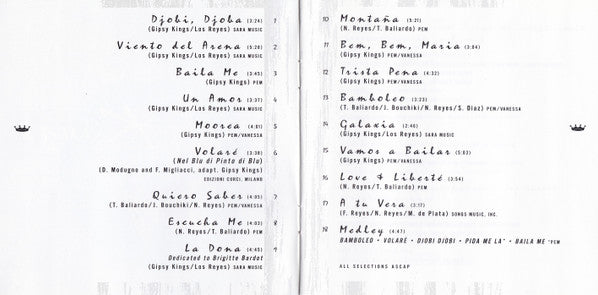 Djobi, Djoba (3:24) 1
(Gipsy Kings/Los Reyes) SARA MUSIC
Viento del Arena (5:28) 2
(Gipsy Kings/Los Reyes) SARA MUSIC
Baila Me (3:45) 3
(Gipsy Kings) PEM
Un Amor (3:37) 4
(Gipsy Kings/Los Reyes) SARA MUSIC
Moorea (4:01) 5
(Gipsy Kings) PEM/VANESSA
Volaré (3:38) 6
(Nel Blu di Pinto di Blu)
(D. Modugno and F. Migliacci, adapt. Gipsy Kings)
EDIZIONI CURCI, MILANO
Quiero Saber (4:05) 7
(T. Baliardo/J. Bouchiki/N. Reyes) PEM/VANESSA
Escucha Me (4:03) 8
(N. Reyes/T. Baliardo) PEM
La Dona (4:45) 9
Dedicated to Brigitte Bardot
(Gipsy Kings/Los Reyes) SARA MUSIC
10 Montaña (5:21)
(N. Reyes/T. Baliardo) PEM
11 Bem, Bem, Maria (3:04)
(Gipsy Kings) PEM/VANESSA
12 Trista Pena (4:32)
(Gipsy Kings) PEM/VANESSA
13 Bamboleo (3:23)
(T. Baliardo/J. Bouchiki/N. Reyes/S. Diaz) PEM/VANESSA
14 Galaxia (2:46)
(Gipsy Kings/Los Reyes) SARA MUSIC
15 Vamos a Bailar (5:03)
(Gipsy Kings) PEM/VANESSA
16 Love & Liberté (3:54)
(N. Reyes/T. Baliardo) PEM
17 A tu Vera (3:17)
(F. Reyes/N. Reyes/M. de Plata) SONGS MUSIC, INC.
18 Medley (4:47)
BAMBOLEO • VOLARE • DJOBI DJOBI • PIDA ME LA* • BAILA ME *PEM
ALL SELECTIONS ASCAP